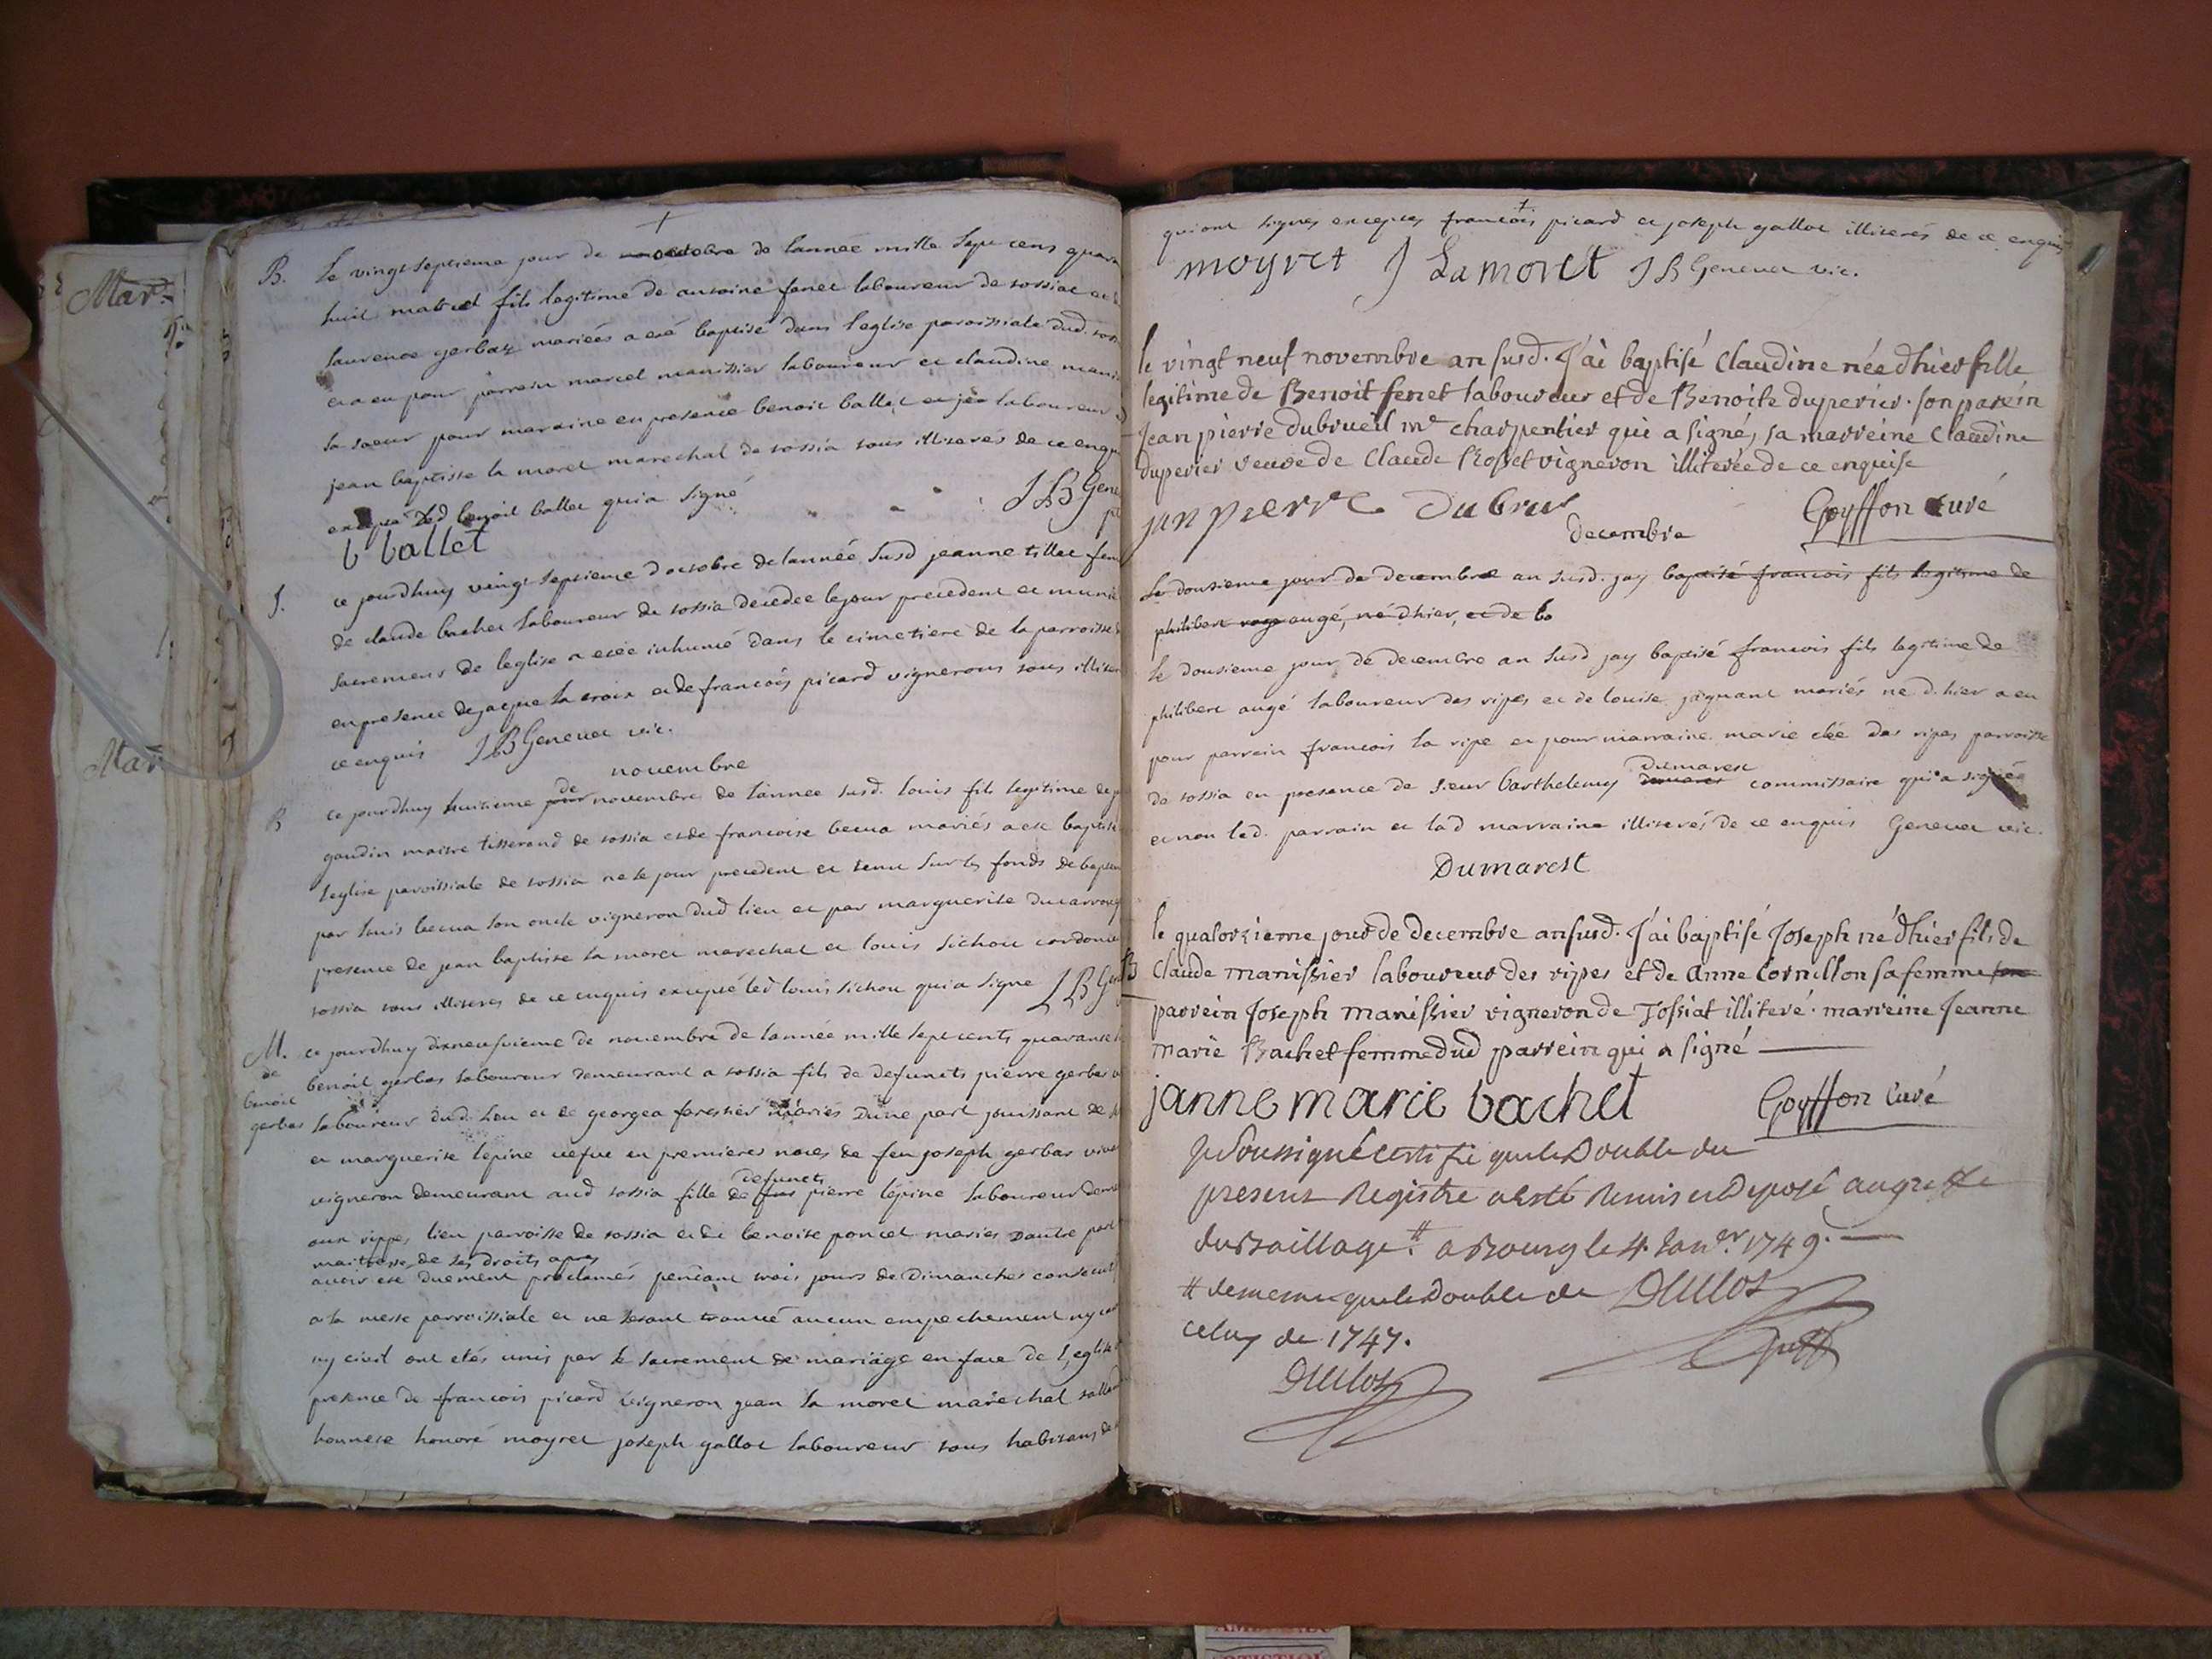 Mar.
Mar
B. Le vingt septieme jour de octobre de l'année mille sept cens quara
huit fils legitime de antoine fenet laboureur de tossiat et
laurence gerbaz mariés a eté baptisé dans l'eglise paroissiale dud.
et a eu pour parrein marcel manissier laboureur et claudine mani
sa soeur pour maraine en presence benoit ballet laboureur
jean baptiste la moret marechal de tossia tous illiterés de ce enqu
excepté led benoit ballet qui a signé
J B Gene
b ballet
S. ce jourdhuy vingt septieme d'octobre de l'année susd jeanne tillet fem
de claude bachet laboureur de tossia decedee le jour precedent et munie
sacremens de l'eglise a eteé inhumé dans le cimetiere de la parroisse
en presence de jacque la croix et de francois picard vignerons tous illiter
ce enquis J B Genevet vic.
novembre
B ce jourdhuy huitieme de novembre de l'année susd. louis fils legitime de
gaudin maitre tisserand de tossia et de francoise becua mariés a eté baptisé
l'eglise paroissiale de tossia né le jour precedent et tenu sur les fonds de bapte
par louis becua son oncle vigneron dud lieu et par marguerite
presence de jean baptiste la moret marechal et louis sichou cordonni
tossia tous illiteres de ce enquis excepté led louis sichou qui a signe J B Ge
M. ce jourdhuy dixneufvieme de novembre de l'année mille sept cents quarante
de benoit gerbas laboureur demeurant a tossia fils de defuncts pierre gerbas
benoit
gerbas laboureur dud. lieu et de georgea forestier mariés d'une part jouissant de
et marguerite lepine vefve en premieres noces de feu joseph gerbas viva
defuncts
vigneron demeurant aud tossia fille de pierre lépine laboureur deme
aux rippes lieu parroisse de tossia et de benoite poncet mariés d'autre part
maitresse de ses droits apres
avoir eté duement proclamés pendant trois jours de dimanches consecut
a la messe parroissiale et ne s'etant trouvé aucun empechement ny
ny civil ont etés unis par le sacrement de mariage en face de l'eglise
presence de francois picard vigneron jean la moret marechal
honnete honoré moyret joseph gallot laboureur tous habitans de
qui ont signes exceptes francois picard et joseph gallot illiterés de ce enquis
moyret J Lamoret J B Genevet vic.
le vingt neuf novembre an susd. J'ai baptisé Claudine née d'hier fille
legitime de Benoit fenet laboureur et de Benoite duperier. son parein
Jean pierre dubrueil me charpentier qui a signé, sa marreine Claudine
duperier veuve de Claude Rosset vigneron illiterée de ce enquise
jan pierre Dubrus Goyffon curé
decembre
Le dousieme jour de decembre an susd. jay baptisé francois fils legitime de
philibert augé, né d'hier, et de bo
le dousieme jour de decembre an susd jay baptisé francois fils legitime de
philibert augé laboureur des ripes et de louise jaquant mariés né d'hier a eu
pour parrein francois la ripe et pour marraine marie clée des ripes parroisse
dumarest
de tossia en presance de sieur barthelemy commissaire qui a signé
et non led. parrain et lad marraine illiterés de ce enquis Genevet vic.
Dumarest
le quatorzieme jour de decembre an susd. J'ai baptisé Joseph né d'hier fils de
B Claude manissier laboureur des ripes et de Anne Cornillon sa femme
parrein Joseph manissier vigneron de Tossiat illiteré. marreine Jeanne
marie Bachet femme dud parrein qui a signé
janne marie bachet Goyffon Curé
Je Soussigné certifie que le Double du
present Registre a esté remis et Deposé au greffe
du Baillage # a Bourg le 4. Janer 1749.
# de meme que le Double de
celuy de 1747.